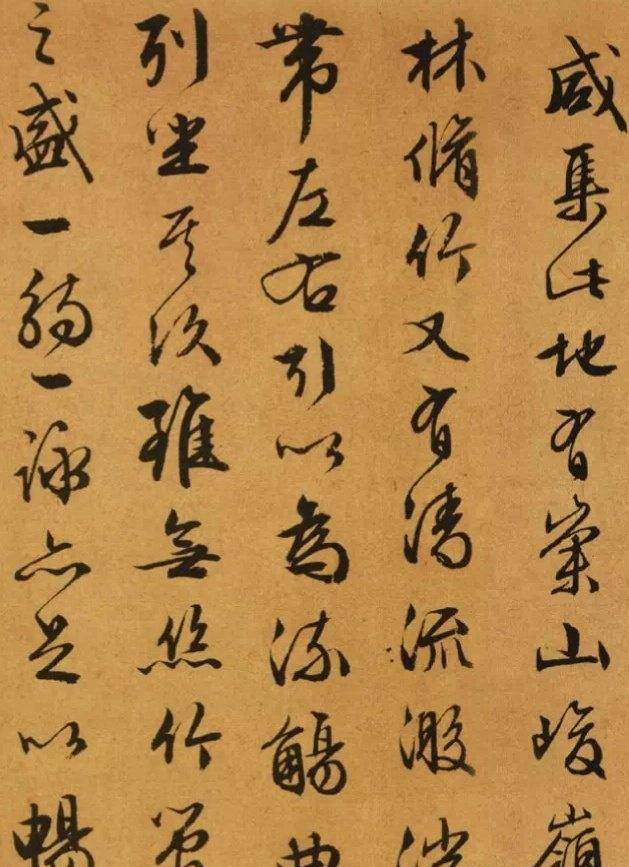 咸集此地有崇山峻嶺
林脩竹又有清流激湍
帶左右引以為流觴曲
列坐其次雖無絲竹管
之盛一觴一詠亦足以暢